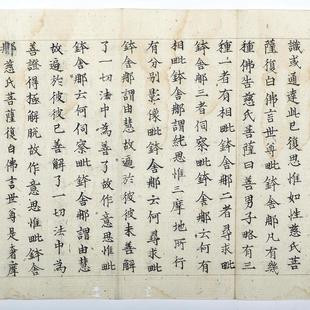 識或通達真已復思惟如性慈氏菩
薩復白佛言世尊此毗鉢舍那凡有幾
種佛告慈氏菩薩曰善男子略有三
種一者有相毗鉢舍那二者尋求毗
鉢舍那三者伺察毗鉢舍那云何有
相毗鉢舍那謂純思惟三摩地所行
有分別影像毗鉢舍那云何尋求毗
鉢舍那謂由慧故遍於彼彼未善解
了一切法中為善了故作意思惟毗
鉢舍那云何伺察毗鉢舍那謂由慧
故遍於彼彼已善解了一切法中為
善證得極解脫故作意思惟毗鉢舍
那慈氏菩薩復白佛言世尊是奢摩